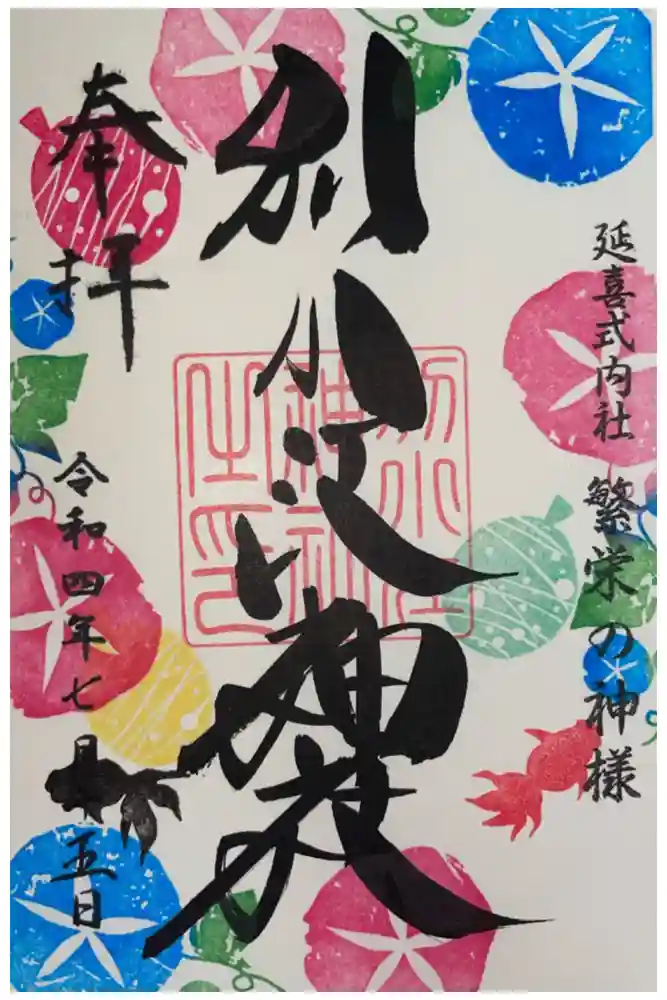 延喜式内社 繁栄の神様
別小江神社
別小江
神社
之印
奉拝
令和四年七月五日